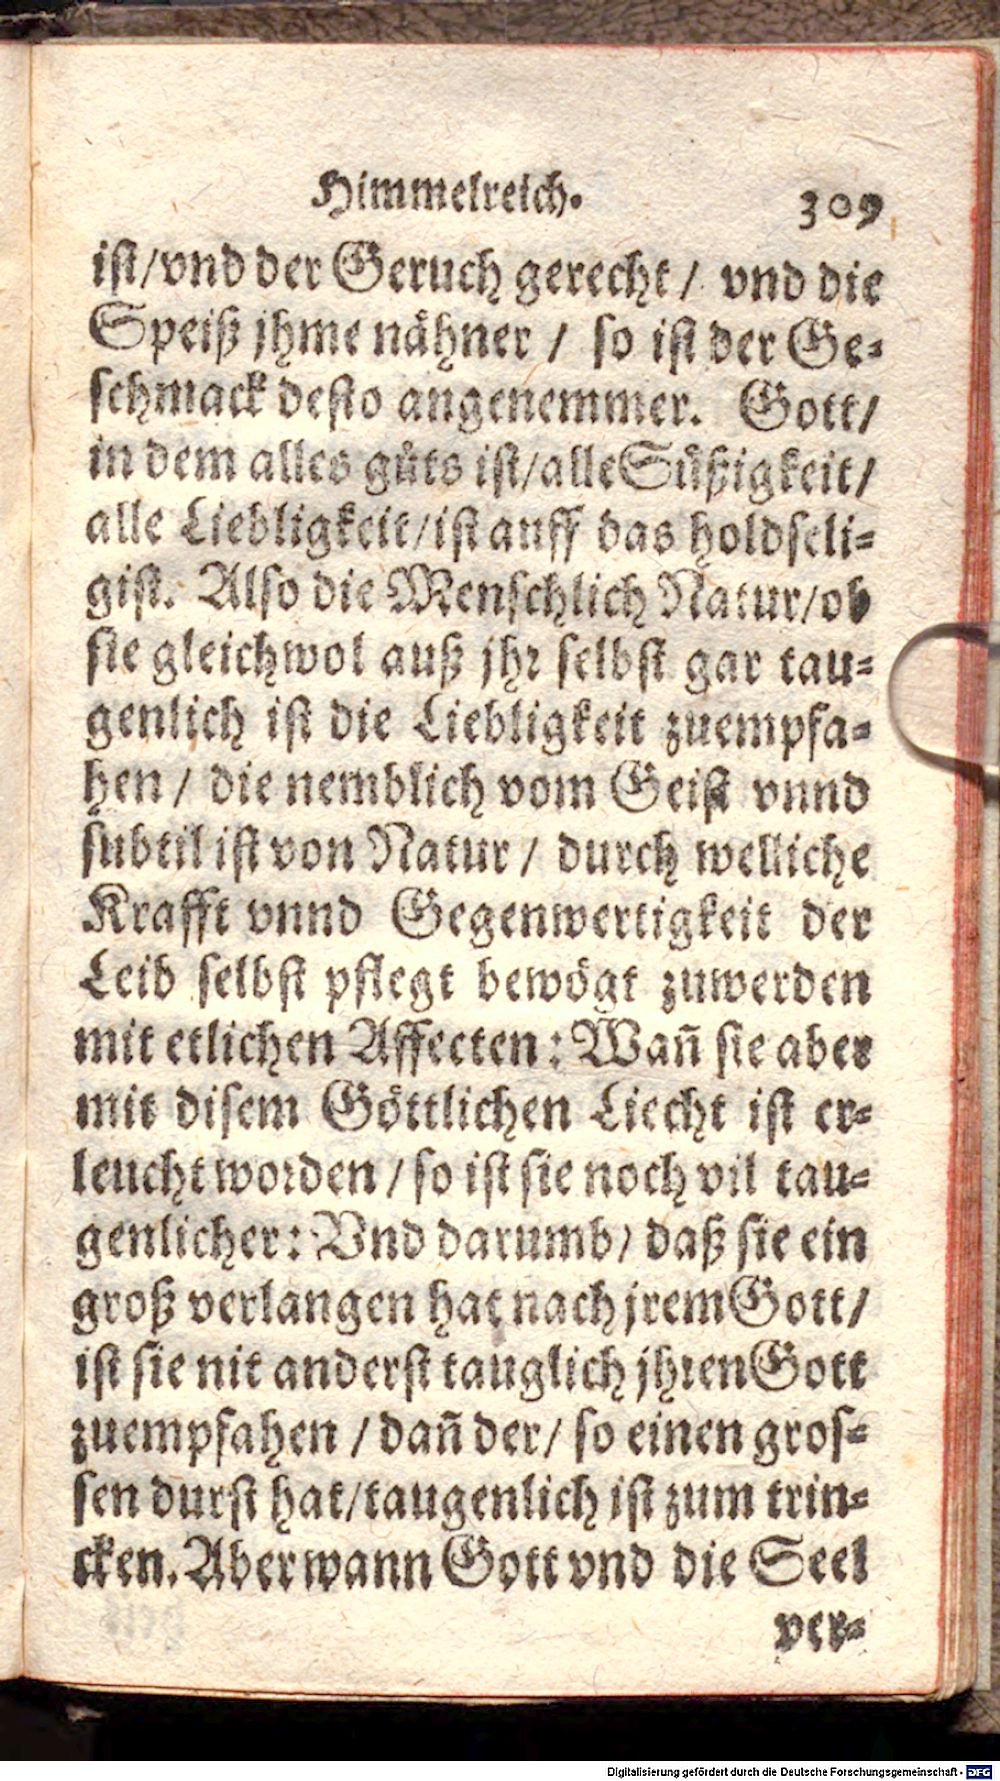 Himmelreich. 309
ist/vnd der Geruch gerecht/ vnd die
Speiß jhme nähner / so ist der Ge-
schmack desto angenemmer. Gott/
in dem alles gůts ist/alle Süßigkeit/
alle Liebligkeit/ist auff das holdseli-
gist. Also die Menschlich Natur/ob
sie gleichwol auß jhr selbst gar tau-
genlich ist die Liebligkeit zuempfa-
hen / die nemblich vom Geist vnnd
subtil ist von Natur / durch welliche
Krafft vnnd Gegenwertigkeit der
Leib selbst pflegt bewögt zuwerden
mit etlichen Affecten: Wañ sie aber
mit disem Göttlichen Liecht ist er-
leucht worden / so ist sie noch vil tau-
genlicher: Vnd darumb/ daß sie ein
groß verlangen hat nach jrem Gott/
ist sie nit anderst tauglich jhren Gott
zuempfahen / dañ der/ so einen gros-
sen durst hat/taugenlich ist zum trin-
cken. Aber wann Gott vnd die Seel
ver-
Digitalisierung gefördert durch die Deutsche Forschungsgemeinschaft - DFG